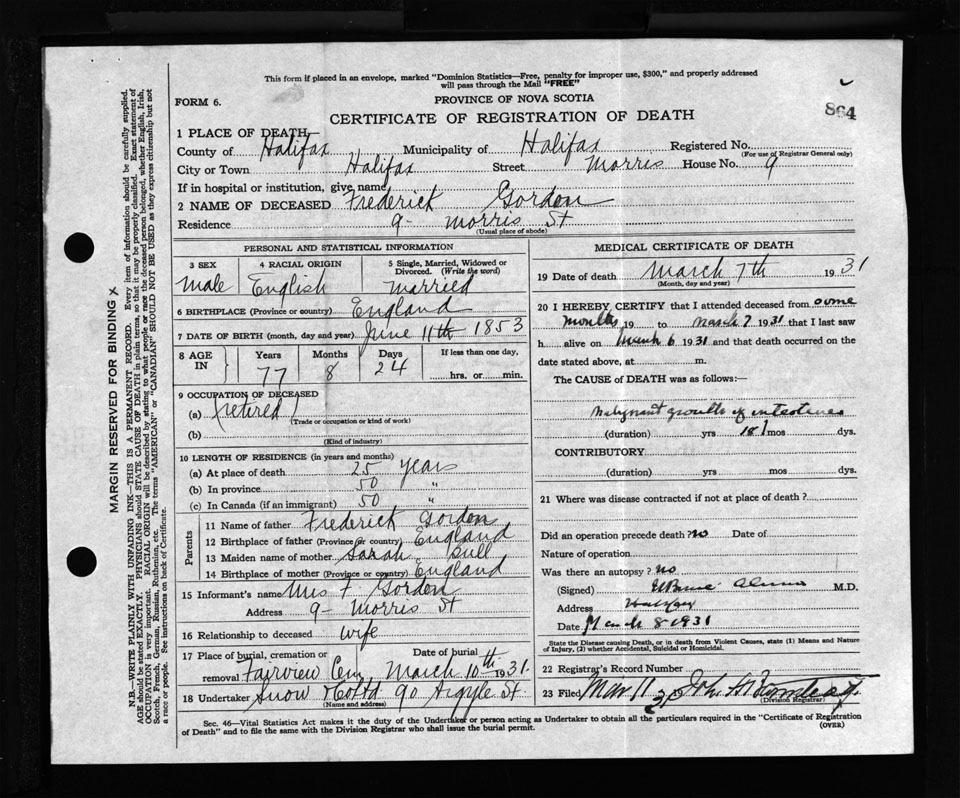 This form if placed in an envelope, marked "Dominion Statistics—Free, penalty for improper use, $300," and properly addressed
will pass through the Mail "FREE"
FORM 6.
PROVINCE OF NOVA SCOTIA
864
CERTIFICATE OF REGISTRATION OF DEATH
1 PLACE OF DEATH
County of Halifax Municipality of Halifax Registered No.
(For use of Registrar General only)
City or Town Halifax Street Morris House No. 9
If in hospital or institution, give name
2 NAME OF DECEASED Frederick Gordon
Residence 9- Morris St
(Usual place of abode)
PERSONAL AND STATISTICAL INFORMATION
3 SEX 4 RACIAL ORIGIN 5 Single, Married, Widowed or
Divorced. (Write the word)
Male English Married
6 BIRTHPLACE (Province or country) England
7 DATE OF BIRTH (month, day and year) June 11th 1853
8 AGE IN Years Months Days If less than one day,
77 8 24 hrs. or min.
9 OCCUPATION OF DECEASED
(a) (retired)
(Trade or occupation or kind of work)
(b)
(Kind of industry)
10 LENGTH OF RESIDENCE (in years and months)
(a) At place of death 25 years
(b) In province 50 "
(c) In Canada (if an immigrant) 50 "
Parents
11 Name of father Frederick Gordon
12 Birthplace of father (Province or country) England
13 Maiden name of mother Sarah
14 Birthplace of mother (Province or country) England
15 Informant's name Mrs F Gordon
Address 9- Morris St
16 Relationship to deceased wife
17 Place of burial, cremation or Date of burial
removal Fairview Cem March 10th 1931.
18 Undertaker Snow & Co Ltd 90 Argyle St.
(Name and address)
MEDICAL CERTIFICATE OF DEATH
19 Date of death March 7th 1931
(Month, day and year)
20 I HEREBY CERTIFY that I attended deceased from some
months 19 to March 7 1931 that I last saw
h alive on March 6 1931 and that death occurred on the
date stated above, at m.
The CAUSE OF DEATH was as follows:—
Malignant growth of intestines
(duration) yrs mos dys.
CONTRIBUTORY
(duration) yrs mos dys.
21 Where was disease contracted if not at place of death?
Did an operation precede death? no Date of
Nature of operation
Was there an autopsy? no
(Signed) M.D.
Address Halifax
Date March 8 1931
State the Disease causing Death, or in death from Violent Causes, state (1) Means and Nature
of Injury, (2) whether Accidental, Suicidal or Homicidal.
22 Registrar's Record Number
23 Filed Mar 11
(Division Registrar)
Sec. 46—Vital Statistics Act makes it the duty of the Undertaker or person acting as Undertaker to obtain all the particulars required in the "Certificate of Registration
of Death" and to file the same with the Division Registrar who shall issue the burial permit.
(OVER)
MARGIN RESERVED FOR BINDING
N.B.—WRITE PLAINLY WITH UNFADING INK—THIS IS A PERMANENT RECORD. Every item of information should be carefully supplied.
AGE should be stated EXACTLY. PHYSICIANS should STATE CAUSE OF DEATH in plain terms, so that it may be properly classified. Exact statement of
OCCUPATION is very important. RACIAL ORIGIN will be described by stating to what people or race the deceased person belonged, whether English, Irish,
Scotch, French, German, Russian, Ruthenian, etc. The terms "AMERICAN" or "CANADIAN" SHOULD NOT BE USED as they express citizenship but not
a race or people. See instructions on back of Certificate.